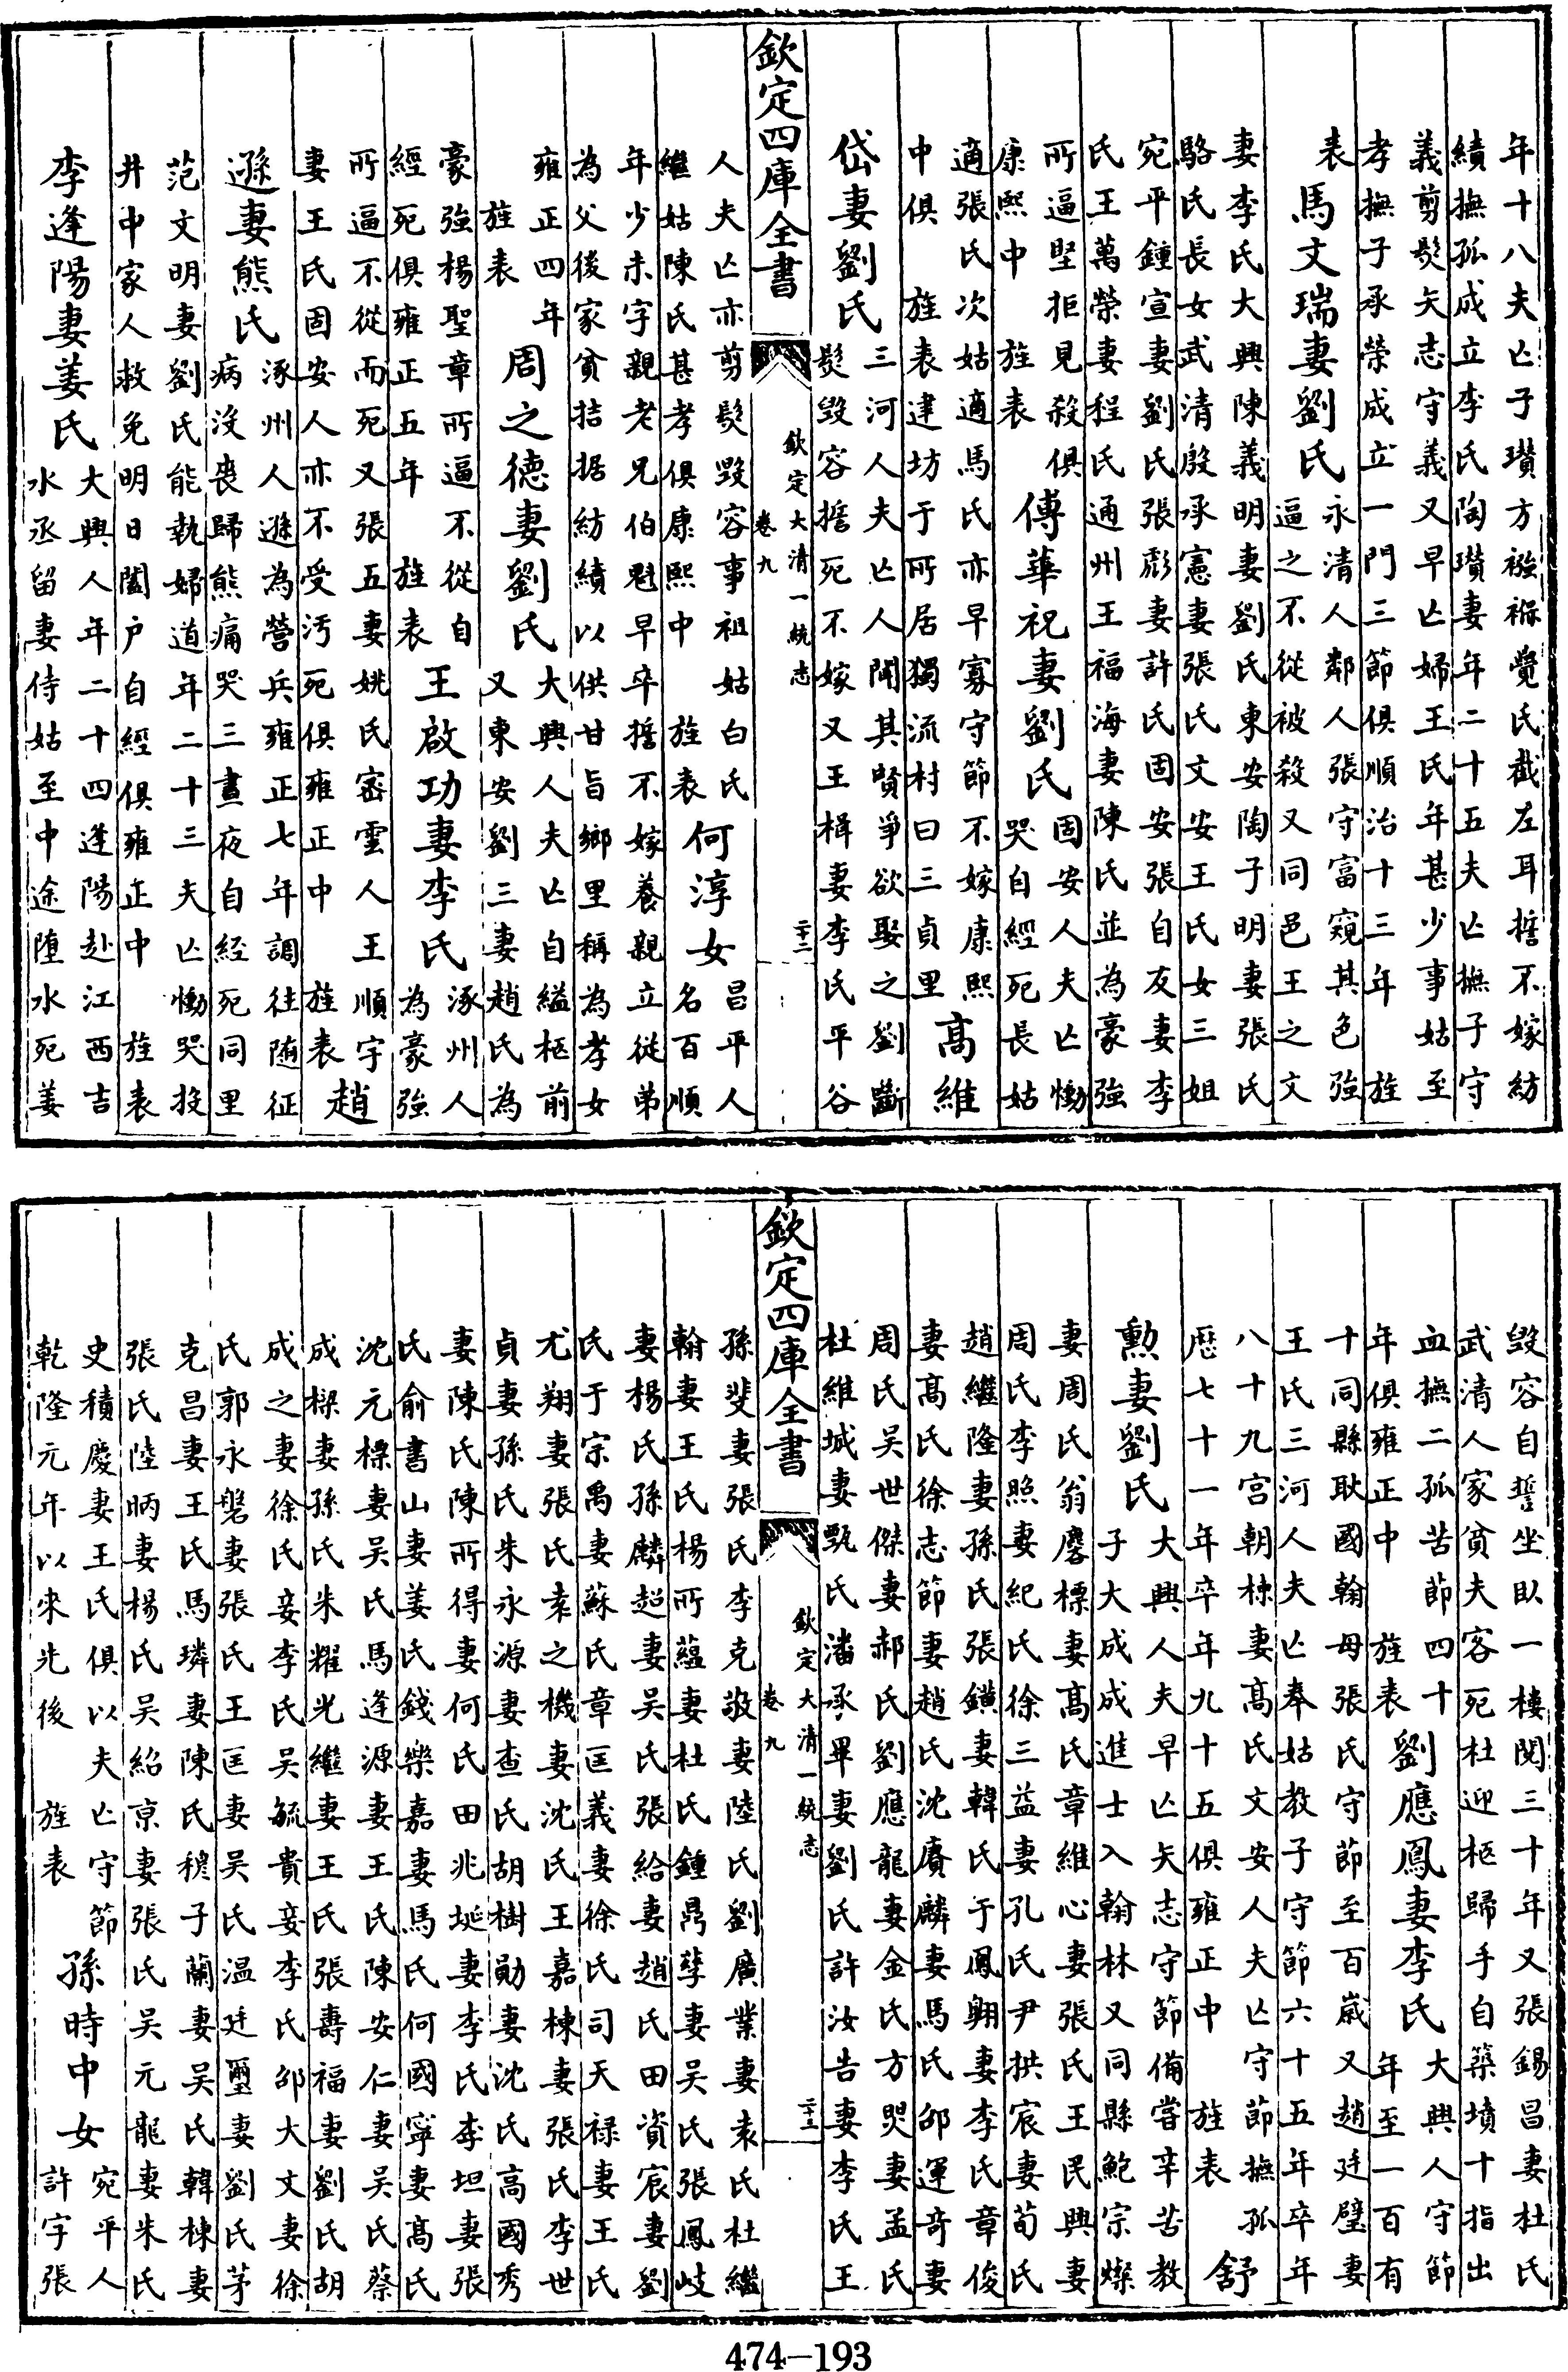 年十八夫亡子瓚方襁褓覺氏截左耳誓不嫁紡
績撫孤成立李氏陶瓚妻年二十五夫亡撫子守
義剪髮矢志守義又早亡婦王氏年甚少事姑至
孝撫子承榮成立一門三節俱順治十三年旌
表
馬文瑞妻劉氏
永清人鄰人張守富窺其色強
逼之不從被殺又同邑王之文
妻李氏大興陳義明妻劉氏東安陶子明妻張氏
駱氏長女武清殷承憲妻張氏文安王氏女三姐
宛平鍾宣妻劉氏張彪妻許氏固安張自友妻李
氏王萬榮妻程氏通州王福海妻陳氏並為豪強
所逼堅拒見殺俱
康熙中旌表
傅華祝妻劉氏
固安人夫亡慟
哭自經死長姑
適張氏次姑適馬氏亦早寡守節不嫁康熙
中俱旌表建坊于所居獨流村曰三貞里
高維
岱妻劉氏
三河人夫亡人聞其賢爭欲娶之劉斷
髮毀容誓死不嫁又王楫妻李氏平谷
欽定四庫全書
欽定大清一統志
卷九
二十二
人夫亡亦剪髮毀容事祖姑白氏
繼姑陳氏甚孝俱康熙中旌表
何淳女
昌平人
名百順
年少未字親老兄伯魁早卒誓不嫁養親立從弟
為父後家貧拮据紡績以供甘旨鄉里稱為孝女
雍正四年
旌表
周之德妻劉氏
大興人夫亡自縊柩前
又東安劉三妻趙氏為
豪強楊聖章所逼不從自
經死俱雍正五年旌表
王啟功妻李氏
涿州人
為豪強
所逼不從而死又張五妻姚氏密雲人王順字
妻王氏固安人亦不受污死俱雍正中旌表
趙
遜妻熊氏
涿州人遜為營兵雍正七年調往隨征
病沒喪歸熊痛哭三晝夜自經死同里
范文明妻劉氏能執婦道年二十三夫亡慟哭投
井中家人救免明日闔戶自經俱雍正中旌表
李逢陽妻姜氏
大興人年二十四逢陽赴江西吉
水丞留妻侍姑至中途墮水死姜
毀容自誓坐臥一樓閱三十年又張錫昌妻杜氏
武清人家貧夫客死杜迎柩歸手自築墳十指出
血撫二孤苦節四十
年俱雍正中旌表
劉應鳳妻李氏
大興人守節
年至一百有
十同縣耿國翰母張氏守節至百歲又趙廷璧妻
王氏三河人夫亡奉姑教子守節六十五年卒年
八十九宮朝棟妻高氏文安人夫亡守節撫孤
歷七十一年卒年九十五俱雍正中旌表
舒
勲妻劉氏
大興人夫早亡矢志守節備嘗辛苦教
子大成成進士入翰林又同縣鮑宗燦
妻周氏翁麐標妻高氏章維心妻張氏王民興妻
周氏李照妻紀氏徐三益妻孔氏尹拱宸妻荀氏
趙繼隆妻孫氏張鐄妻韓氏于鳳翺妻李氏章俊
妻高氏徐志節妻趙氏沈賡麟妻馬氏邵運奇妻
周氏吳世傑妻郝氏劉應龍妻金氏方昊妻孟氏
杜維城妻甄氏潘承畢妻劉氏許汝吉妻李氏王
欽定四庫全書
欽定大清一統志
卷九
二十三
孫斐妻張氏李克敬妻陸氏劉廣業妻袁氏杜繼
翰妻王氏楊所蘊妻杜氏鍾昺孳妻吳氏張鳳岐
妻楊氏孫麟超妻吳氏張給妻趙氏田資宸妻劉
氏于宗禹妻蘇氏章匡義妻徐氏司天祿妻王氏
尤翔妻張氏袁之機妻沈氏王嘉棟妻張氏李世
貞妻孫氏朱永源妻查氏胡樹勛妻沈氏高國秀
妻陳氏陳所得妻何氏田兆埏妻李氏李坦妻張
氏俞書山妻姜氏錢樂嘉妻馬氏何國寧妻高氏
沈元標妻吳氏馬逢源妻王氏陳安仁妻吳氏蔡
成樑妻孫氏朱耀光繼妻王氏張壽福妻劉氏胡
成之妻徐氏妾李氏吳毓貴妾李氏邵大文妻徐
氏郭永磐妻張氏王匡妻吳氏溫廷璽妻劉氏茅
克昌妻王氏馬璘妻陳氏穆子蘭妻吳氏韓棟妻
張氏陸昞妻楊氏吳紹京妻張氏吳元龍妻朱氏
史積慶妻王氏俱以夫亡守節
乾隆元年以來先後旌表
孫時中女
宛平人
許字張
474—193